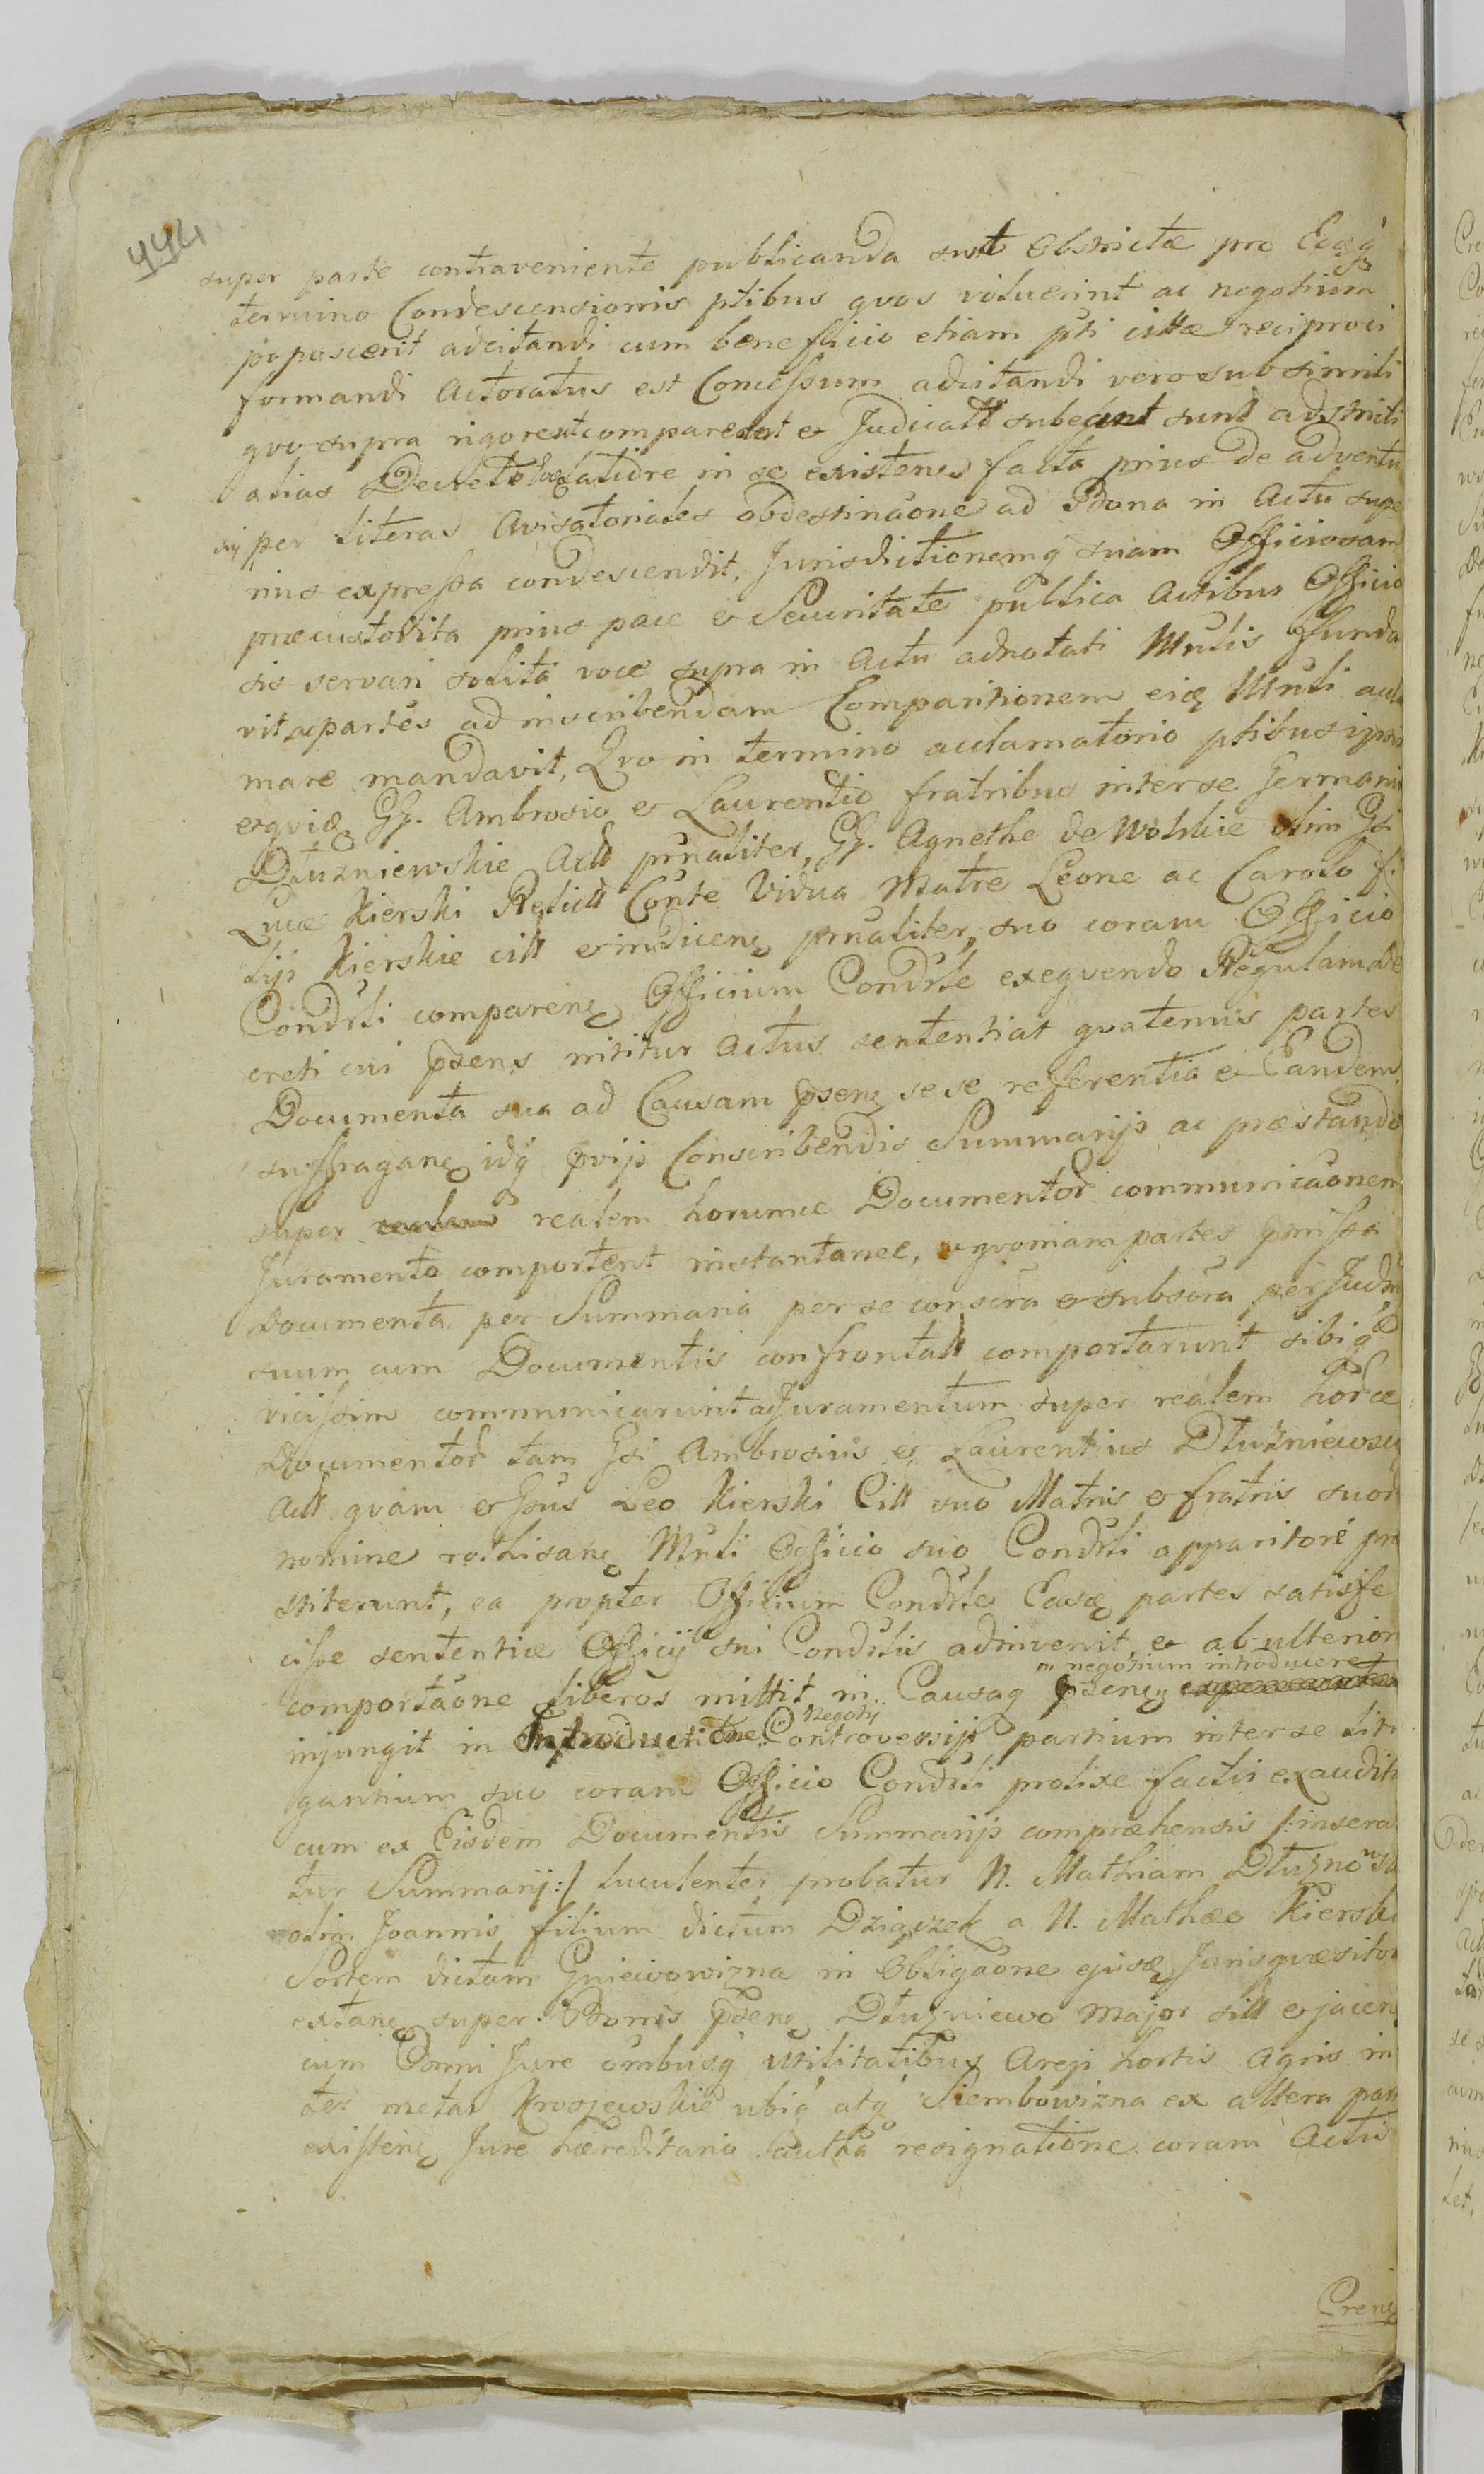 444
super parte contraveniente publicanda sunt obstrictæ pro Eoq̃
termino Condescensionis ptibus qvos voluerint ac negotium
poposcerit adcitandi cum beneficio etiam pti cittæ reciproci
formandi Actoratus est Concessum adcitandi vero sub simili
qvo supra rigore ut compareant et Judicatt subeant sunt adstricti
alias Decreto latiore in se existens facta prius de adventu
sq per literas Avisatoriales obdestinaõne ad Bona in Actu supe
rius expressa condescendit, Jurisdictionemq̃ suam Officiosam
præcustodita prius pace et Securitate publica Actibus Officio
sis servari solita voce supra in Actu adnotati Mnlis ffunda
vit, ac partes ad inscribendam Comparitionem eiq Mnli accla
mare mandavit, Qvo in termino acclamatorio ptibus ipsis
exqviq GG. Ambrosio et Laurentio fratribus inter se Germanis
Dłużniewskie Actt prnaliter, GG. Agnethe de Wolskie olim Gsi
Lucæ Kierski Relictt Conte Vidua Matre Leone ac Carolo fi
lijs Kierskie citt et indicenq prnaliter, suo coram Officio
Condrli comparenq Officium Condrle exeqvendo Regulam De
creti cui psens nititur Actus sententiat qvatenus partes
Documenta sua ad Causam psenq sese referentia et Eandem
suffraganq idq̃ pvijs Conscribendis Summarijs ac præstando
super realem horumce Documentor communicaõnem
Juramento comportent instantanee, et qvoniam partes pmissa
Documenta per Summaria per se conscra et subscra per Judm
suum cum Documentis confrontatt comportarunt sibiq̃
vicissim communicarunt ac Juramentum super realem horce
Documentor tam Gsi Ambrosius et Laurentius Dłużniewscy
Actt qvam et Gsus Leo Kierski Citt suo Matris et fratris suor
nomine rothisanq Mnli Officio suo Condrli apparitore præ
stiterunt, ea propter Officium Condrle Easq partes satisfe
cisse sententiæ Officij sui Condrlis adinvenit et ab ulteriori
comportaõne liberos mittit in Causaq psenq in negotium introducere
injungit in Introductione Negotij Controversijs partium inter se liti
gantium suo coram Officio Condrli prolixe factis exauditis
cum ex Eisdem Documentis Summarijs compræhensis /:insera
tur Summarij:/ luculenter probatur N. Mathiam Dłużnowski
olim Joannis filium dictum Dzięczek a N. Mathæo Kierski
Sortem dictam Gniewowizna in Obligaõne ejusq Jurisqvæsitor
extanq super Bonis psenq Dłużniewo Major sitt et jacenq
cum Omni Jure ombusq̃ Utilitatibus Areis hortis Agris in
ter metas Krosjewskie ubiq̃ atq̃ Siembowizna ex altera parte
existenq Jure hæreditario facta resignatione coram Actis
Crenq